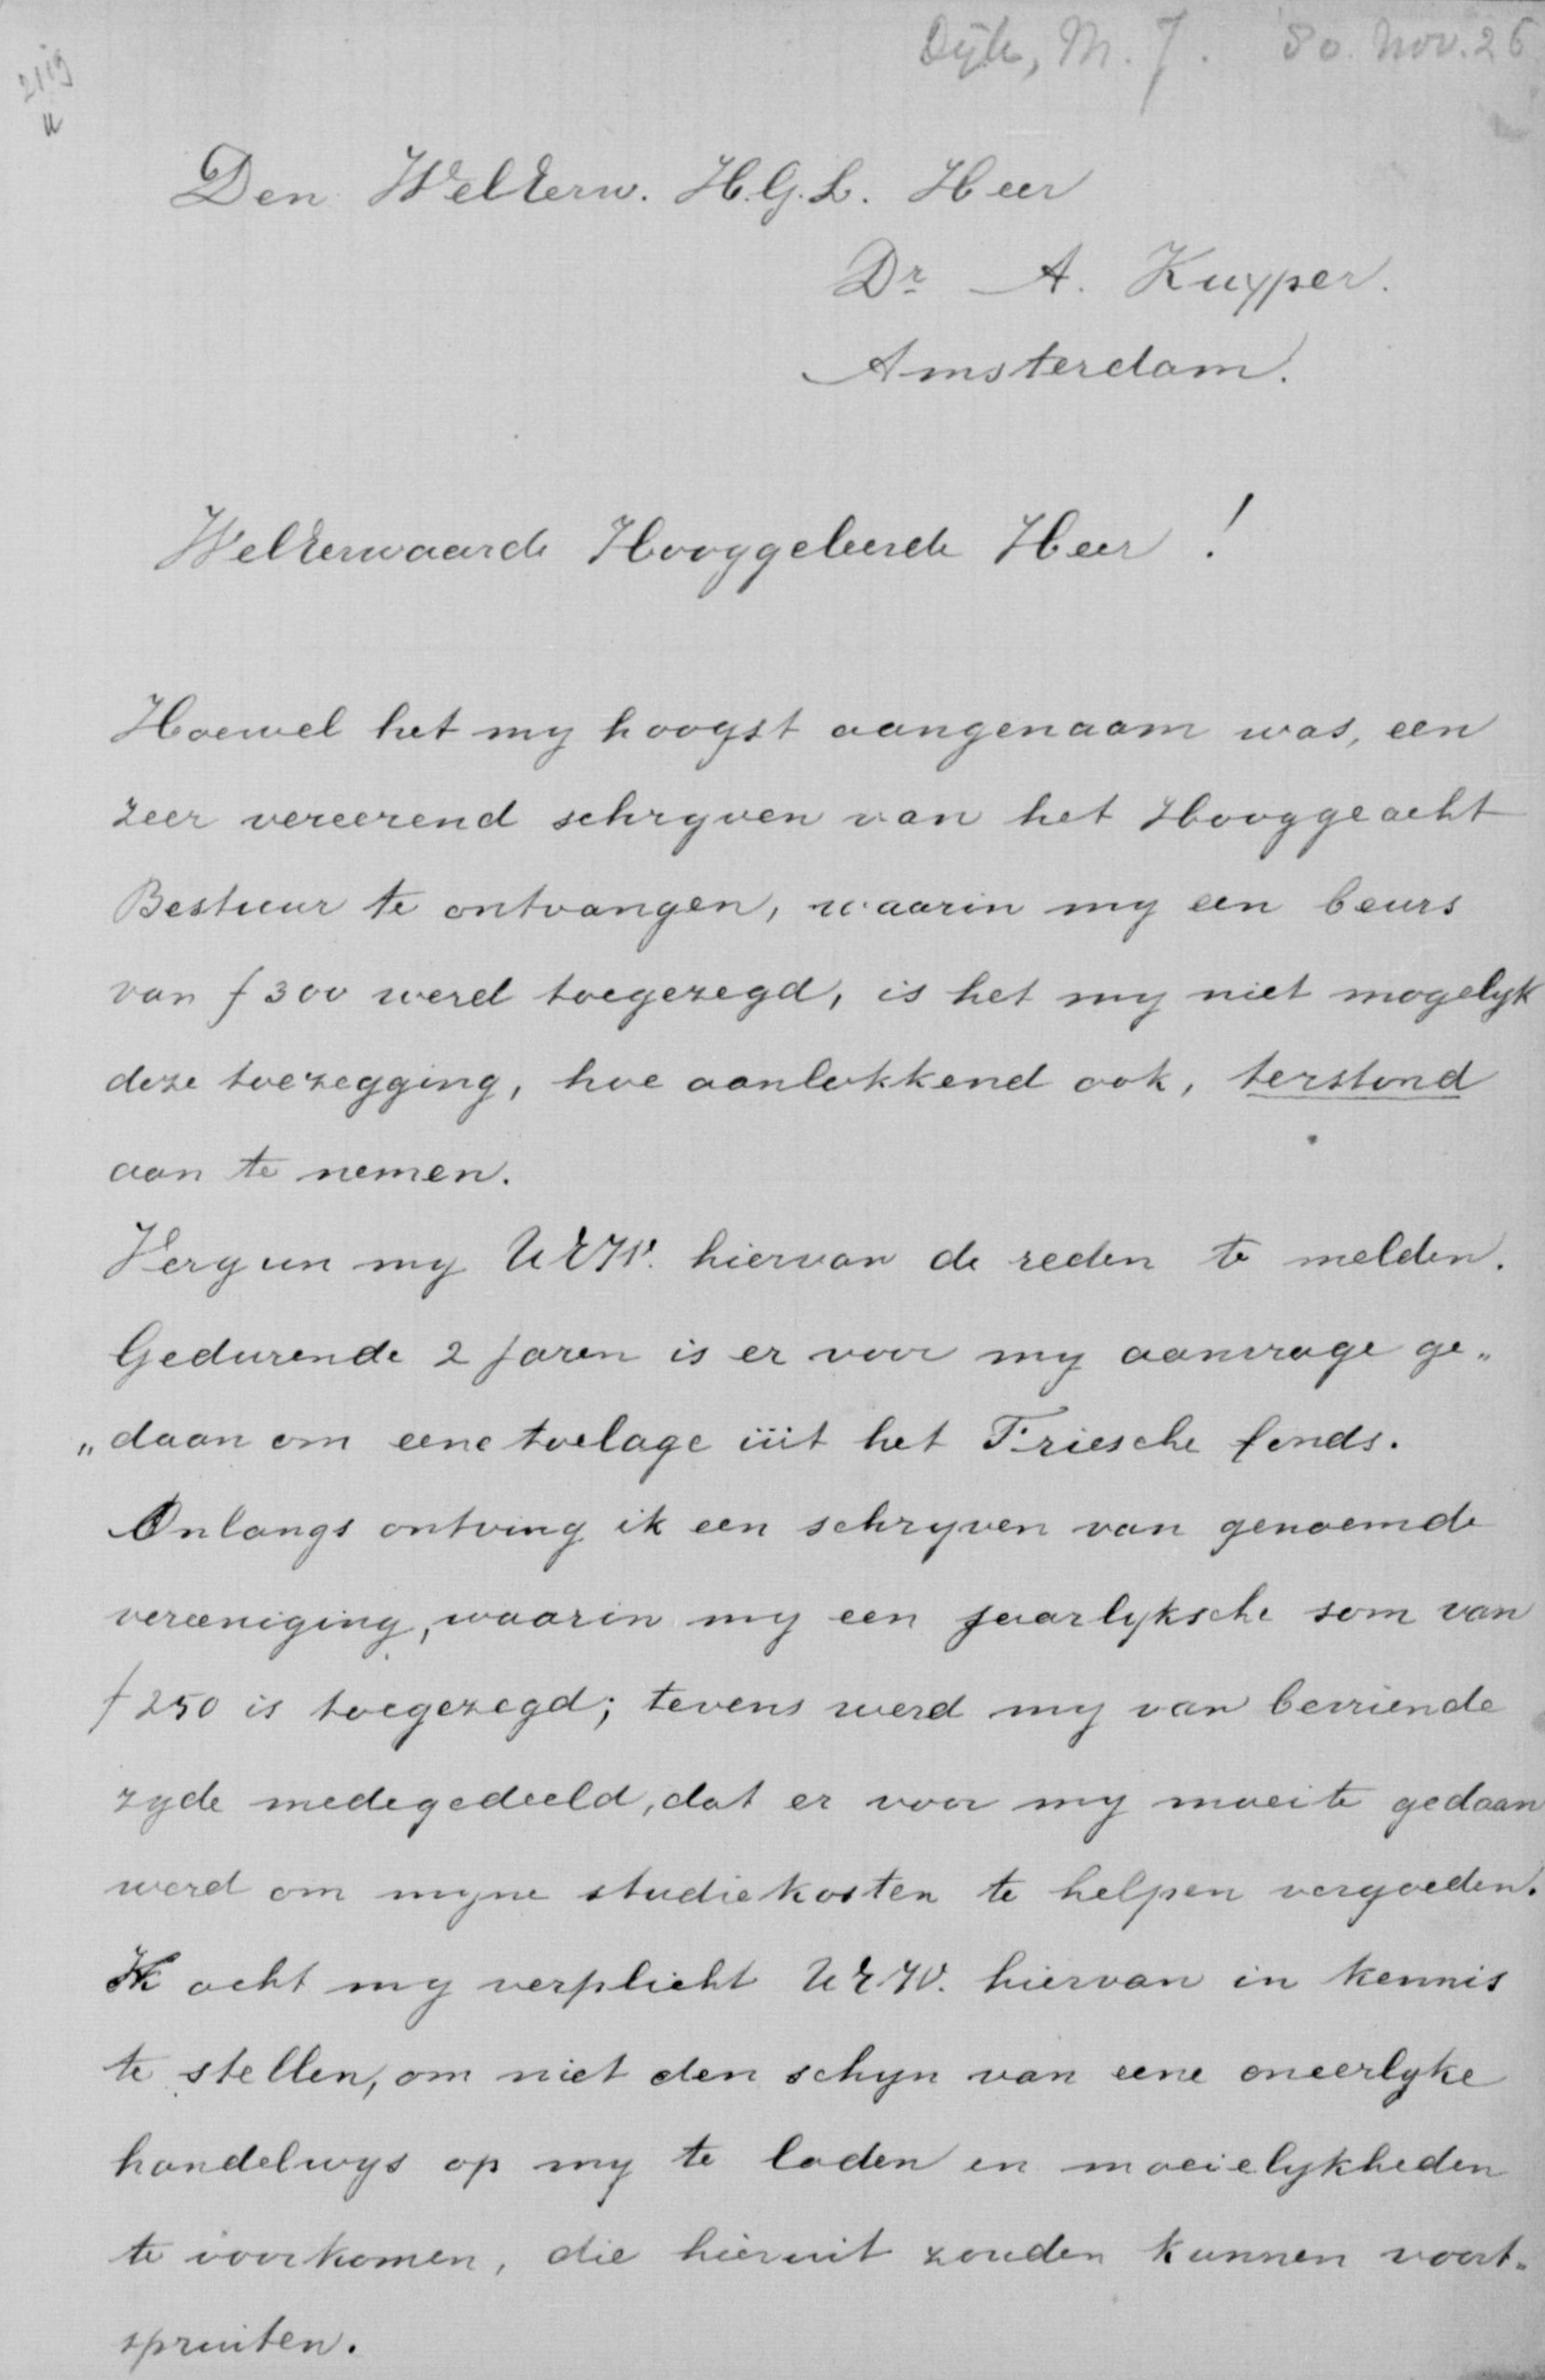 Dijk, M. J. 80. Nov. 26
2119
Den WelEerw. H.G.L. Heer
Dr A. Kuyper.
Amsterdam.
WelEerwaarde Hooggeleerde Heer!
Hoewel het my hoogst aangenaam was, een
zeer vereerend schryven van het Hooggeacht
Bestuur te ontvangen, waarin my een beurs
van f 300 werd toegezegd, is het my niet mogelyk
deze toezegging, hoe aanlokkend ook, terstond
aan te nemen.
Vergun my UEW. hiervan de reden te melden.
Gedurende 2 jaren is er voor my aanvrage ge„
„daan om eene toelage uit het Friesche fonds.
Onlangs ontving ik een schryven van genoemde
vereeniging, waarin my een jaarlyksche som van
f 250 is toegezegd; tevens werd my van bevriende
zyde medegedeeld, dat er voor my moeite gedaan
werd om myne studiekosten te helpen vergoeden.
Ik acht my verplicht UEW. hiervan in kennis
te stellen, om niet den schyn van eene oneerlyke
handelwys op my te laden en moeielykheden
te voorkomen, die hieruit zouden kunnen voort-
spruiten.